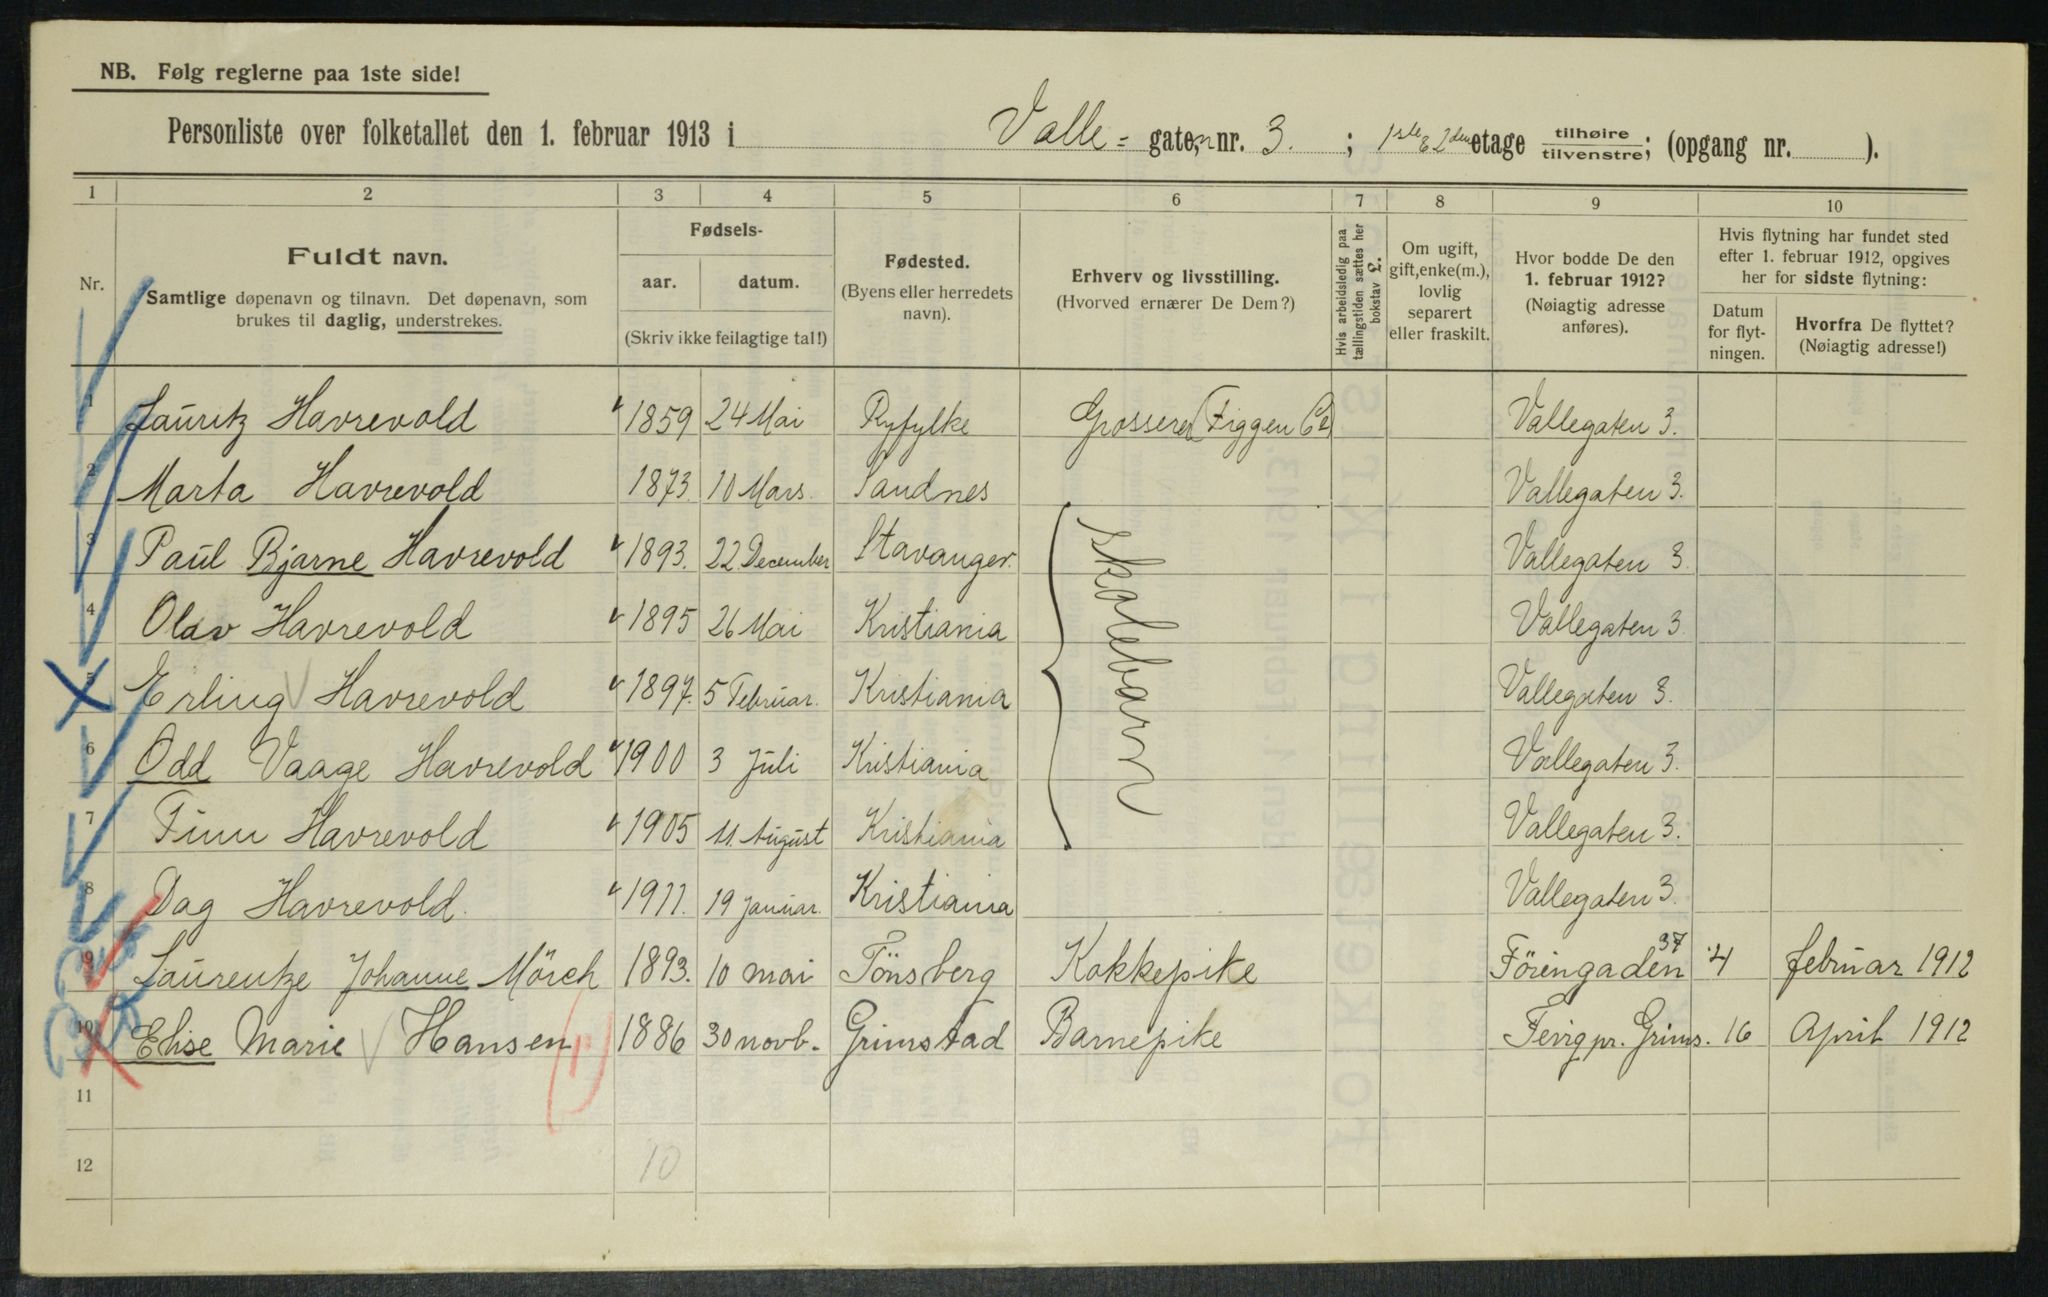 NB. Følg reglerne paa 1ste side!
Personliste over folketallet den 1. februar 1913 i Valle= gate,n nr. 3. ; 1ste & 2den etage tilhøire / tilvenstre; (opgang nr. ).
1 2 3 4 5 6 7 8 9 10
Nr.
Fuldt navn.
Samtlige døpenavn og tilnavn. Det døpenavn, som brukes til daglig, understrekes.
Fødsels-
aar. datum.
(Skriv ikke feilagtige tal!)
Fødested.
(Byens eller herredets navn).
Erhverv og livsstilling.
(Hvorved ernærer De Dem?)
Hvis arbeidsledig paa tællingstiden sættes her bokstav
Om ugift, gift, enke(m.), lovlig separert eller fraskilt.
Hvor bodde De den 1. februar 1912?
(Nøiagtig adresse anføres).
Hvis flytning har fundet sted efter 1. februar 1912, opgives her for sidste flytning:
Datum for flyt-ningen.
Hvorfra De flyttet?
(Nøiagtig adresse!)
1 Lauritz Havrevold 1859 24 Mai Ryfylke Grosserer (Figgen Co) Vallegaten 3.
2 Marta Havrevold 1873 10 Mars. Sandnes Vallegaten 3.
3 Paul Bjarne Havrevold 1893. 22. December Stavanger. Vallegaten 3.
4 Olav Havrevold 1895 26 Mai Kristiania Vallegaten 3.
skolebarn
5 Erling Havrevold 1897. 5 Februar. Kristiania Vallegaten 3.
6 Odd Vaage Havrevold 1900 3 Juli Kristiania Vallegaten 3.
7 Finn Havrevold 1905 11. August Kristiania Vallegaten 3.
8 Dag Havrevold. 1911. 19 Januar. Kristiania Vallegaten 3.
9 Laurentze Johanne Mörch 1893. 10 mai Tönsberg Kokkepike 37 4 februar 1912
10 Elise Marie Hansen 1886 30 novb. Grimstad Barnepike Fevig pr. Grims. 16 April 1912
11
12 10